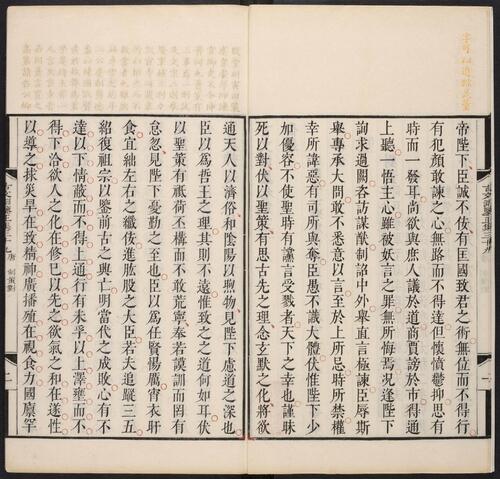 帝陛下臣誠不佞有匡國致君之術無位而不得行
有犯顏敢諫之心無路而不得達但懷憤鬱抑思有
時而一發耳尚欲與庶人議於道商賈謗於市得通
上聽一悟主心雖被妖言之罪無所悔焉況逢陛下
詢求過闕咨訪謀猷制詔中外舉直言極諫臣辱斯
舉專承大問敢不悉意以言至於上所忌時所禁權
幸所諱惡有司所與奪臣愚不識大體伏惟陛下少
加優容不使聖時有讜言受戮者天下之幸也謹昧
死以對伏以聖策有思古先之理念玄默之化將欲
通天人以濟俗和陰陽以煦物見陛下慮道之深也
臣以為哲王之理其則不遠惟致之之道何如耳伏
以聖策有祗荷丕構而不敢荒寧奉若謨訓而罔有
怠忽見陛下憂勤之至也臣以為任賢惕厲宵衣旰
食宜絀左右之纖佞進股肱之大臣若夫追蹤三五
紹復祖宗以鑒前古之興亡明當代之成敗心有不
達以下情蔽而不得上通行有未孚以上澤壅而不
得下洽欲人之化在修己以先之欲氣之和在遂性
以導之救災旱在致精神廣播殖在視食力國廩罕